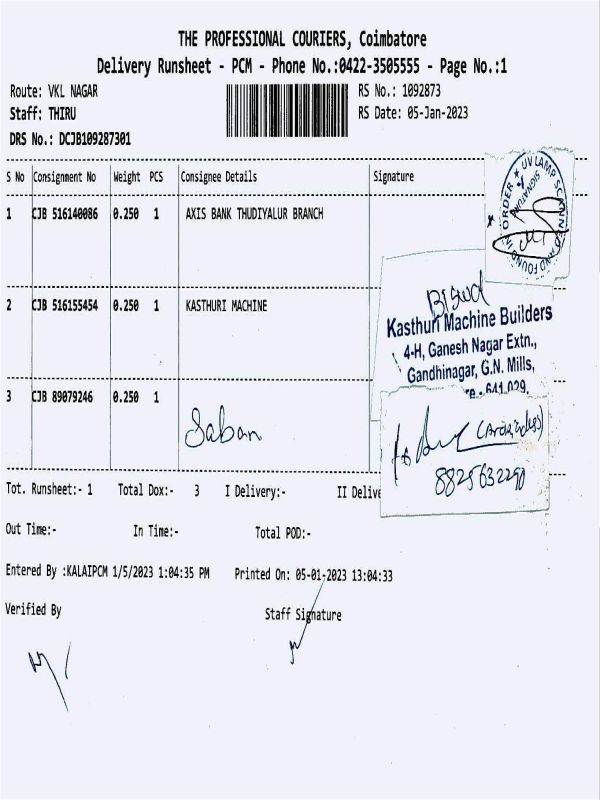 THE PROFESSIONAL COURIERS, Coimbatore
Delivery Runsheet - PCM - Phone No.:0422-3505555 - Page No.:1
Route: VKL NAGAR
RS No.: 1092873
Staff: THIRU
RS Date: 05-Jan-2023
DRS No.: DCJB109287301
S No Consignment No Weight PCS Consignee Details Signature
UV LAMP SCANNED AND FOUND IN ORDER
SIGNATURE
1 CJB 516140086 0.250 1 AXIS BANK THUDIYALUR BRANCH
2 CJB 516155454 0.250 1 KASTHURI MACHINE
Kasthuri Machine Builders
4-H, Ganesh Nagar Extn.,
Gandhinagar, G.N. Mills,
re - 641 029.
3 CJB 89079246 0.250 1
Saban
8825632290
Tot. Runsheet:- 1 Total Dox:- 3 I Delivery:- II Delive
Out Time:- In Time:- Total POD:-
Entered By :KALAIPCM 1/5/2023 1:04:35 PM Printed On: 05-01-2023 13:04:33
Verified By Staff Signature